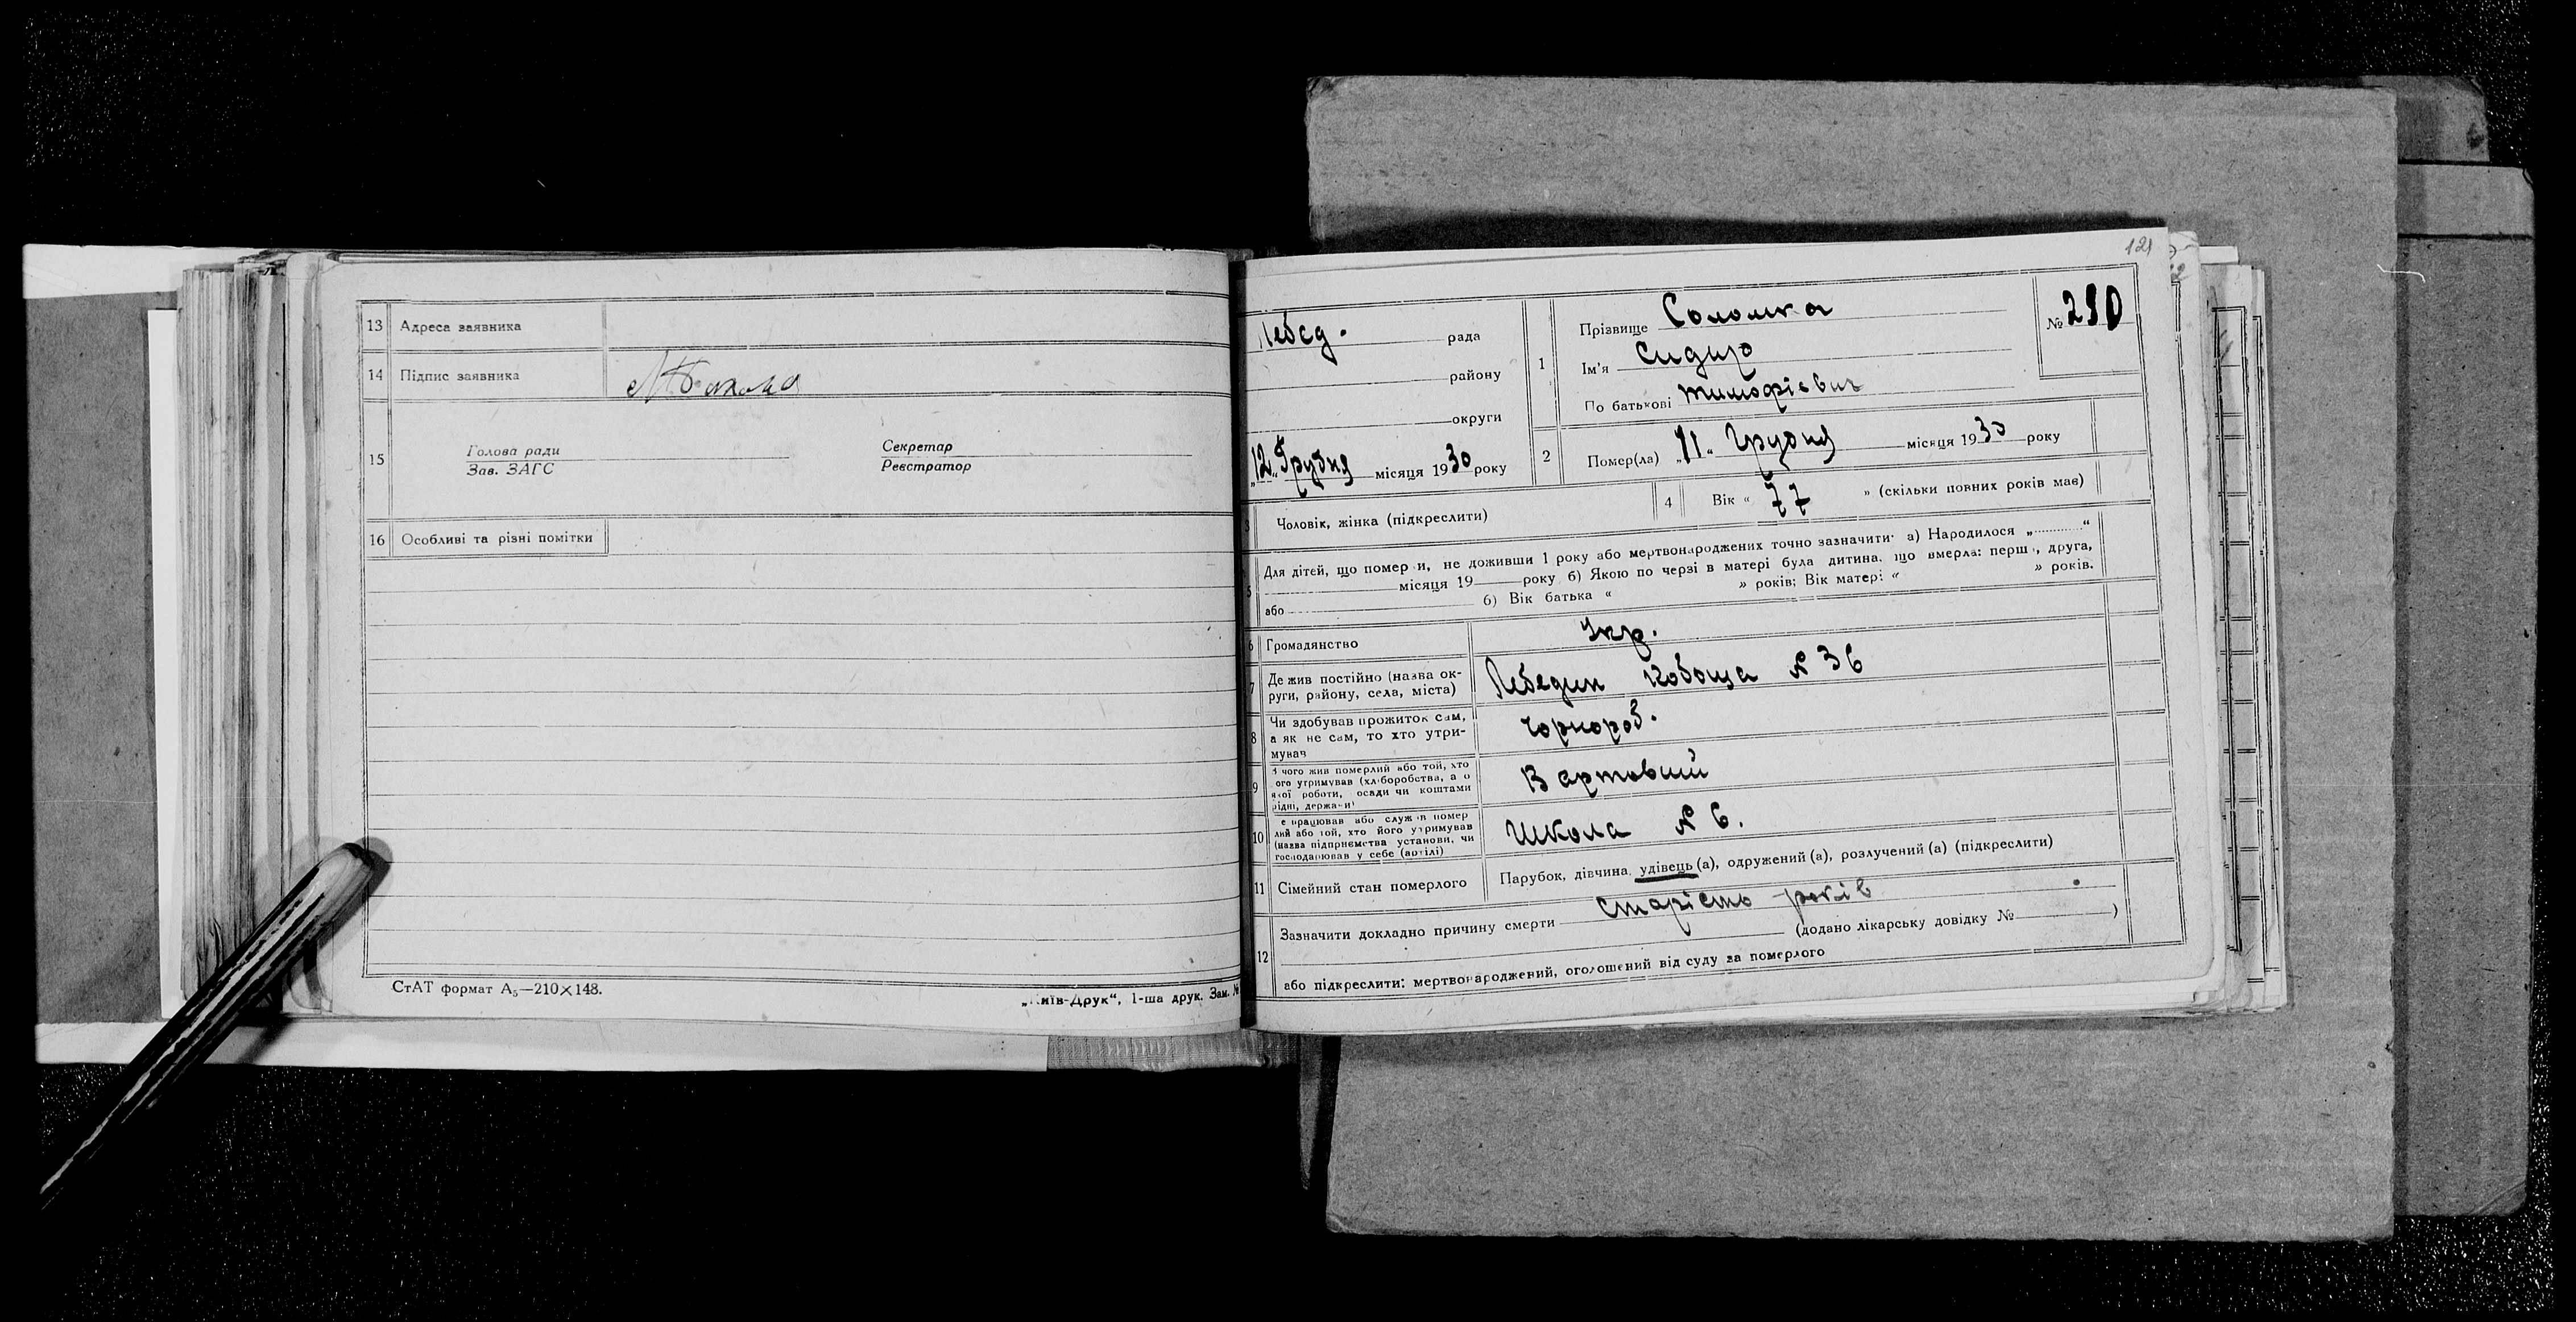 13 Адреса заявника
14 Підпис заявника
15 Голова ради Секретар
Зав. ЗАГС Реєстратор
16 Особливі та різні помітки
СтАТ формат А₅—210×148.
„Київ-Друк“, 1-ша друк. Зам. №
121
Лебед. рада
району
округи
„12“ Грудня місяця 1930 року
1 Прізвище Соломка
Ім'я Сидир
По батькові Тимофієвич
№ 290
2 Помер(ла) „11“ Грудня місяця 1930 року
3 Чоловік, жінка (підкреслити)
4 Вік « 77 » (скільки повних років має)
5 Для дітей, що померли, не доживши 1 року або мертвонароджених точно зазначити: а) Народилося „ “
місяця 19 року б) Якою по черзі в матері була дитина, що вмерла: перша, друга,
або б) Вік батька « » років; Вік матері « » років.
6 Громадянство Укр.
7 Де жив постійно (назва ок-
руги, району, села, міста) Лебедин Кобоща № 36
8 Чи здобував прожиток сам,
а як не сам, то хто утри-
мував Чорнороб.
9 З чого жив померлий або той, хто
його утримував (хліборобства, а о
якої роботи, осади чи коштами
рідні, держави) Вартовий
10 Де працював або служив помер
лий або той, хто його утримував
(назва підприємства установи, чи
господарював у себе (артілі) Школа № 6.
11 Сімейний стан померлого Парубок, дівчина, удівець (а), одружений (а), розлучений (а) (підкреслити)
12 Зазначити докладно причину смерти старість років
(додано лікарську довідку № )
або підкреслити: мертвонароджений, оголошений від суду за померлого